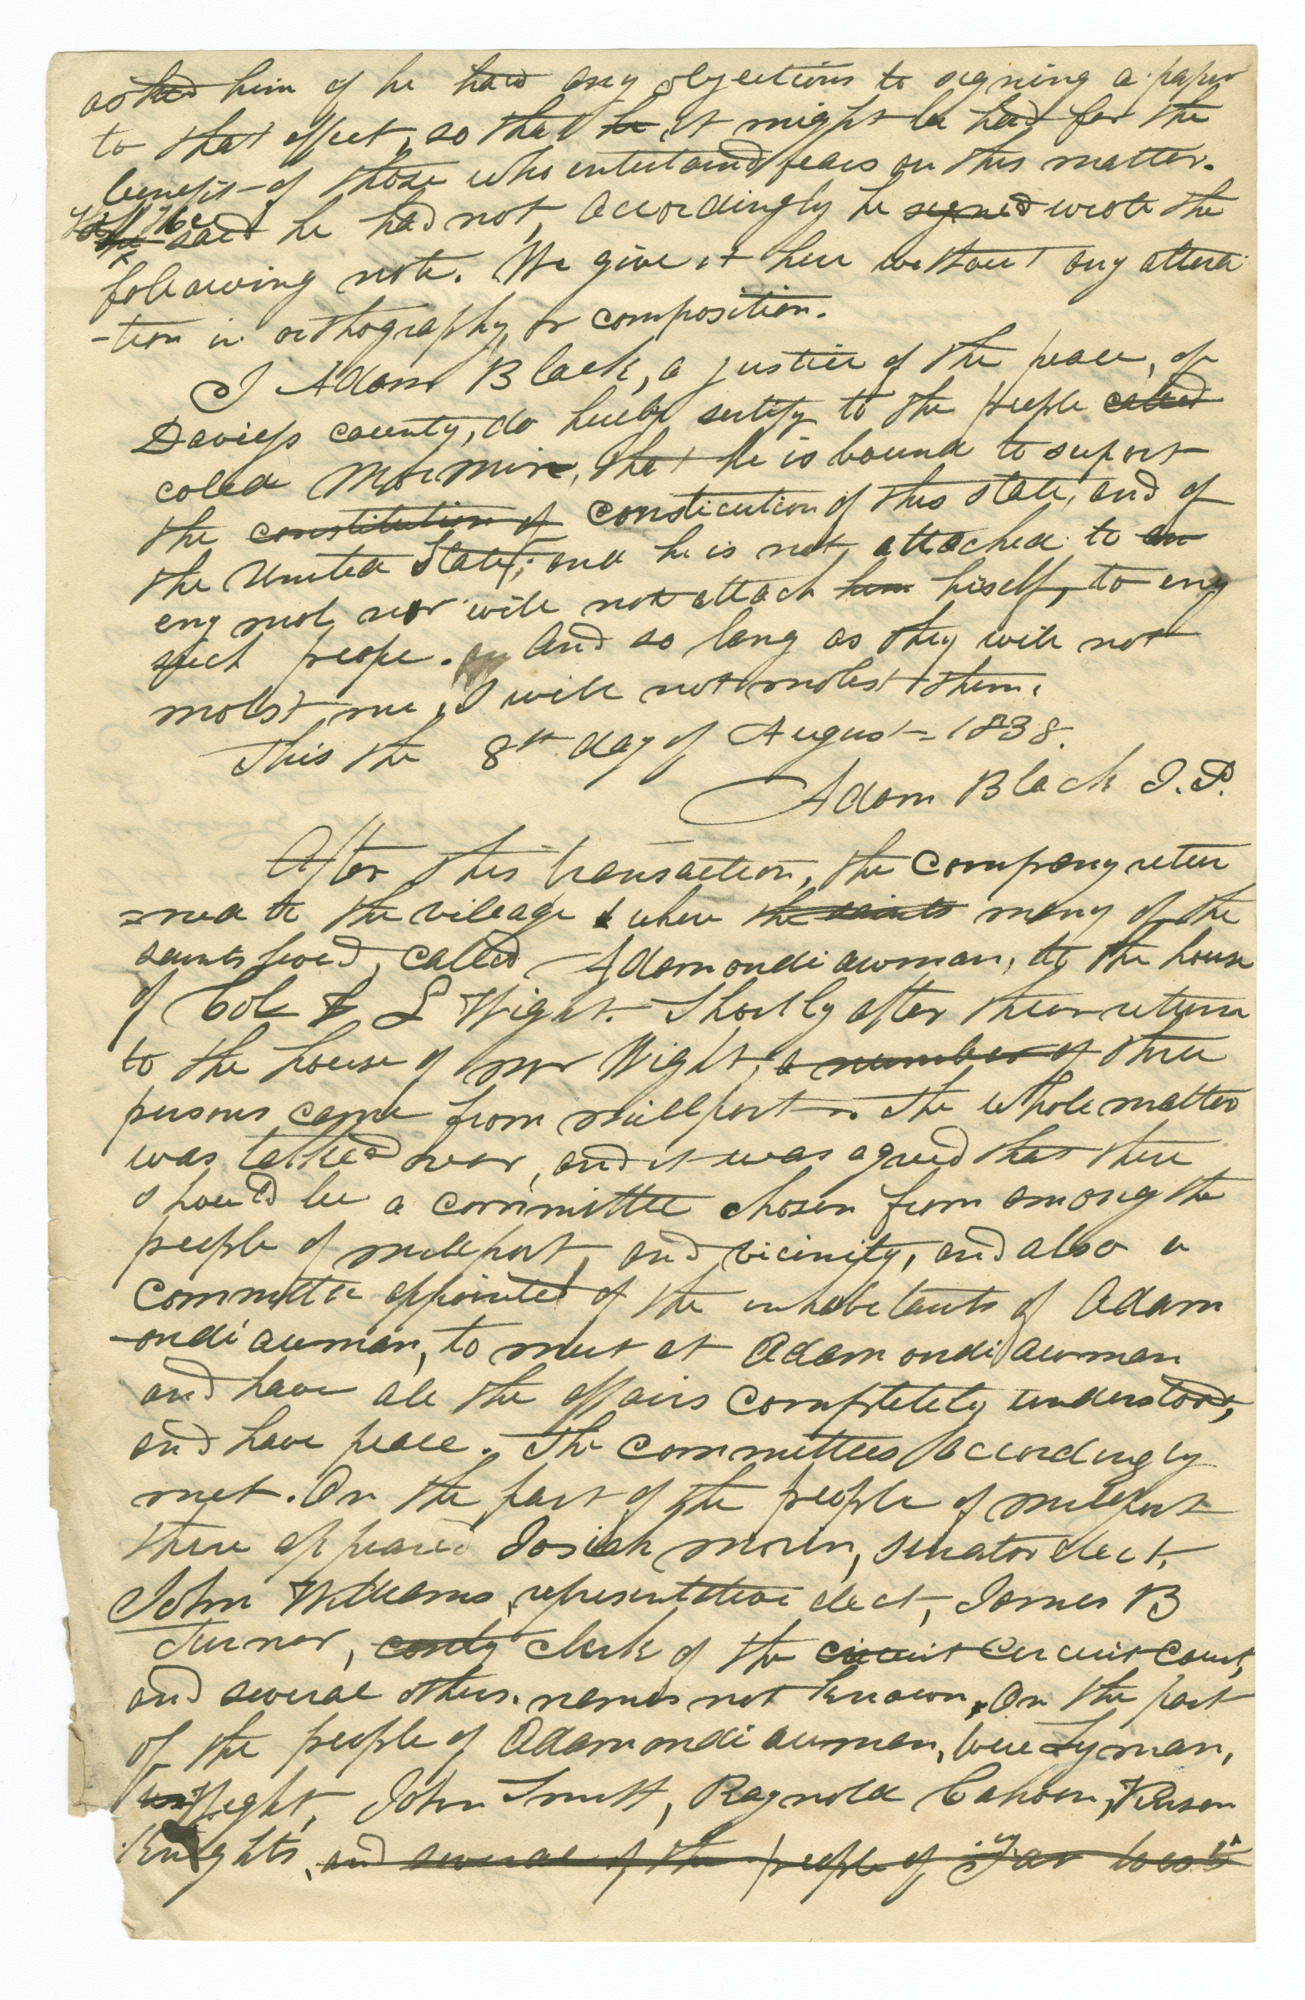 asked him if he had any objections to signing a paper
to that effect, so that he it might be had for the
benefit of those who entertaind fears on this matter.
he said he had not, Accordingly he signed wrote the
following note. We give it here without any altera
-tion in orthography or composition.
I Adam Black, a justice of the peace, of
Daviess county, do hereby sertify to the people called
coled Mormin, that he is bound to suport
the constitution of consticution of this state, and of
the United State, and he is not attached to an
eny mob, nor will not attach him hisself, to eny
such peope. And so long as they will not
molst me, I will not molest them.
This the 8th day of August - 1838.
Adam Black J. P.
After this transaction, the company retur
=ned to the village & where the saints many of the
saints lived, called Adamondiawman, to the house
of Col L Wight. Shortly after their return
to the house of Mr Wight, a number of three
persons came from millport. The whole matter
was talked over, and it was agreed that there
should be a committee chosen from among the
people of millport, and vicinity, and also a
committe appointed of the inhabitants of Adam
-ondiawman, to meet at Adamondiawman
and have all the affairs completely understood,
and have peace. The committees accordingly
met. On the part of the people of millport
there appeared Josiah morin, senator elect,
John Williams, representative elect, James B
Turner, conty clerk of the cicuit circuit court,
and several others. names not known. On the part
of the people of Adamondiawman, were Lyman,
Wight, John Smith, Raynold Cahoon, Vinson
Knights, and several of the people of Far West